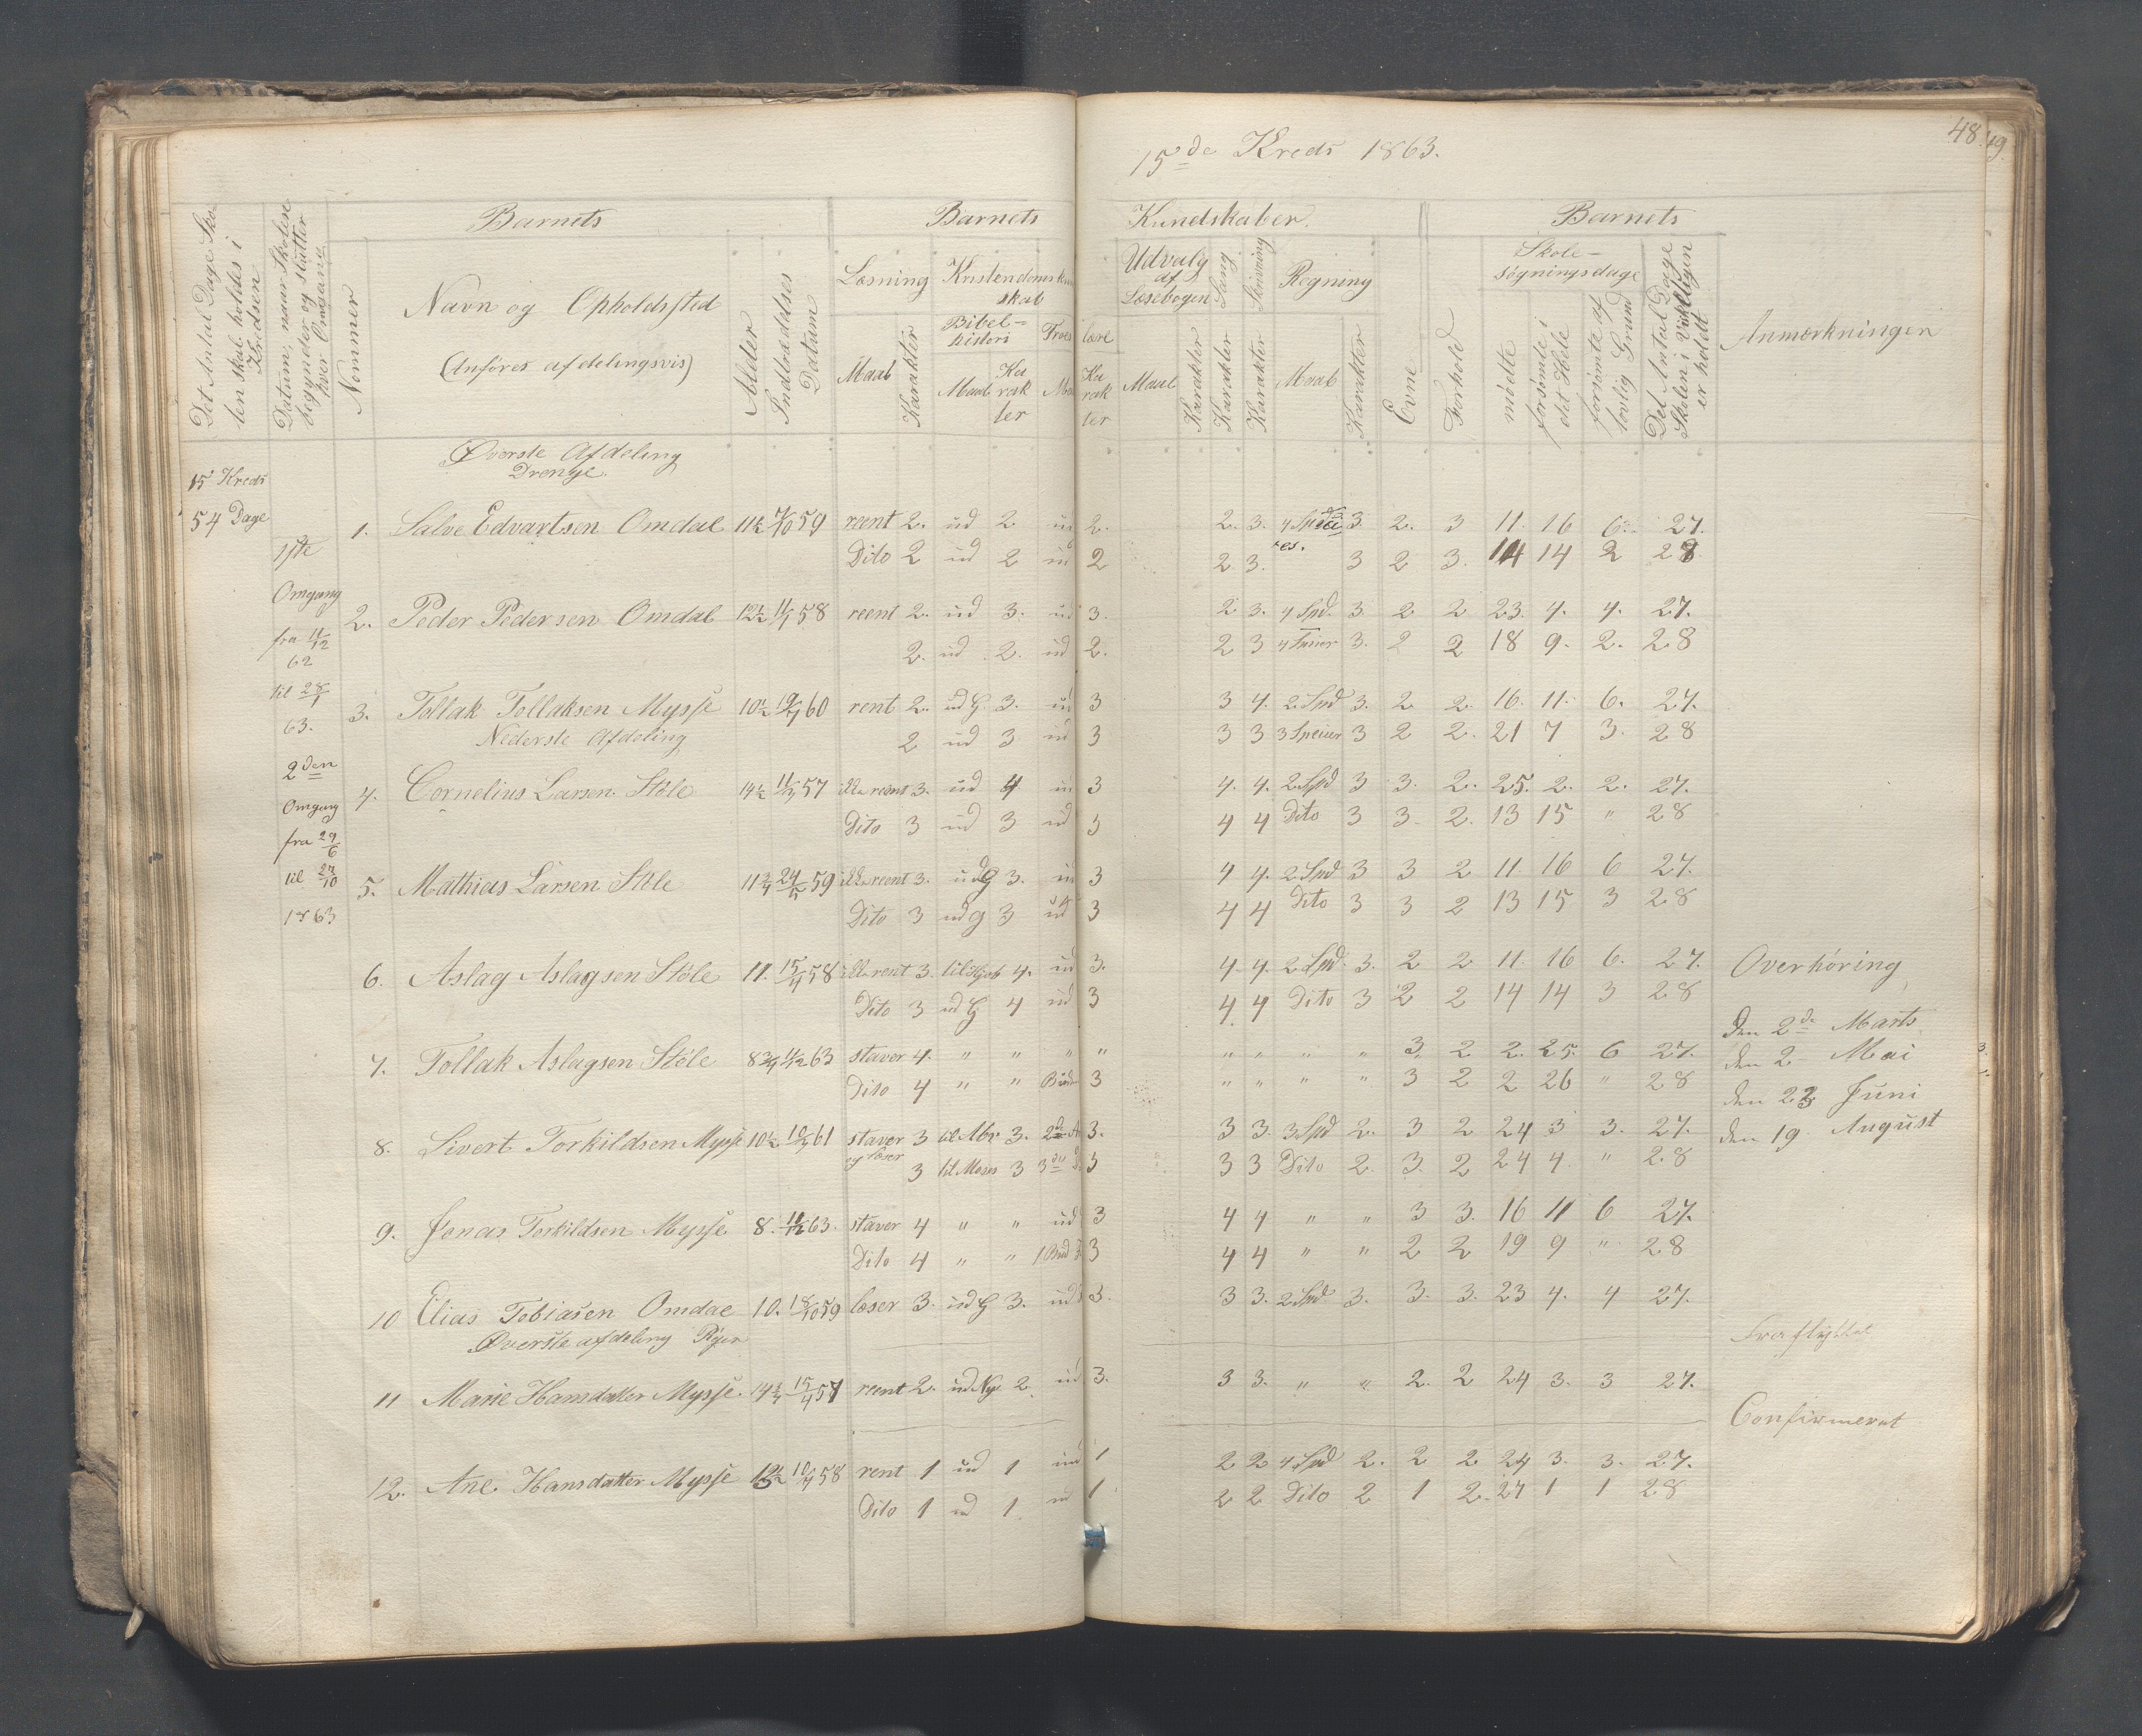 48.
49
15de Kreds 1863.
Det Antal Dage Skolen skal holdes i Kredsen
Datum, naar Skolen begynder og slutter hver Omgang
Nommer
Barnets
Navn og Opholdssted
(Anføres afdelingsvis)
Alder
Indtrædelses Datum
Barnets Kundskaber.
Læsning
Maal
Karakter
Kristendomskundskab
Bibelhistori
Maal
Karakter
Troeslære
Maal
Karakter
Udvalg af Læsebogen
Maal
Karakter
Sang
Karakter
Skrivning
Karakter
Regning
Maal
Karakter
Evne
Barnets
Forhold
Skolesøgningsdage
mødte
forsømte i det Hele
forsømte af lovlig Grund
Det Antal Dage Skolen i Virkeligen er holdt
Anmærkninger
15 Kreds
54 Dage
1ste
Omgang
fra 11/12
62
til 28/1
63.
2den
Omgang
fra 29/6
til 27/10
1863
Øverste Afdeling
Drenge.
1. Salve Edvartsen Omdal 11½ 7/10 59 reent 2. ud 2 ud 2. 2. 3. 4 Species. 3. 2. 3 11. 16 6. 27.
Dito 2 ud 2 ud 2 2 3. 3 2 3. 14 14 2 28
2. Peder Pedersen Omdal 12½ 11/1 58 reent 2. ud 3. ud 3. 2 3. 4 Spd. 3 2 2 23. 4. 4. 27.
2. ud 2. ud 2. 2 3 4 3. 2 2 18 9. 2. 28
3. Tollak Tollaksen Mysse 10½ 60 rent 2. ud G 3. ud 3 3 4. 2 Spd 3. 2 2. 16. 11. 6. 27.
Nederste Afdeling
2 ud 3 ud 3 3 3 3 3 2 2. 21 7 3. 28
4. Cornelius Larsen Støle 14½ 11/3 57 reent 3. ud 4 ud 3 4. 4. 2 Spd 3 3. 2. 25. 2. 2. 27.
Dito 3 ud 3 ud 3 4 4 Dito 3 3. 2. 13 15 " 28
5. Mathias Larsen Støle 11¾ 59 reent 3. ud G 3. ud 3 4 4. 2 Spd 3 3 2 11 16 6 27.
Dito 3 ud G 3 ud 3 4 4 Dito 3 3 2 13 15 3 28
6. Aslag Aslagsen Støle 11. 15/4 58 rent 3. til 4. ud 3. 4. 4. 2 Spd. 3. 2 2 11. 16 6. 27. Overhøring
Dito 3 ud G 4 ud 3 4 4 Dito 3 2 2 14 14 3 28
den 2de Marts
7. Tollak Aslagsen Støle 8¾ 63 staver 4. " " " " " " " " 3 2 2. 25. 6 27.
den 2 Mai
Dito 4 " " 3 " " " " 3 2 2 26 " 28
den 23 Juni
8. Sivert Torkildsen Mysse 10½ 61 staver og læser 3 til 3. 3. 3 3. 3 Spd 2. 3 2 24 3 3. 27.
den 19. August
3 til Moses 3 3 3 3 Dito 2. 3. 2 24 4. " 28
9. Jonas Torkildsen Mysse 8. 11/12 63. staver 4 " " ud 3 4 4 " " 3 3. 16 11 6 27.
Dito 4 " " 3 4 4 " " 2 2 19 9 " 28
10 Elias Tobiasen Omdal 10. 18/10 59 læser 3. ud G 3. ud 3. 3 3. 2 Spd 3. 3. 3. 23 4. 4 27.
Øverste afdeling Piger
Fraflyttet
11 Marie Hansdatter Mysse. 14¼ 15/4 57 reent 2. ud Nye 2. ud 3. 3 3. " " 2. 2 24 3. 3 27.
Confirmeret
12. Ane Hansdatter Mysse 10/4 58 rent 1 ud 1 ud 1 2 2 4 Spd 2. 2 2 24 3. 3. 27.
Dito 1 ud 1. ud 1 2 2 Dito 2 1 2. 27 1 1 28